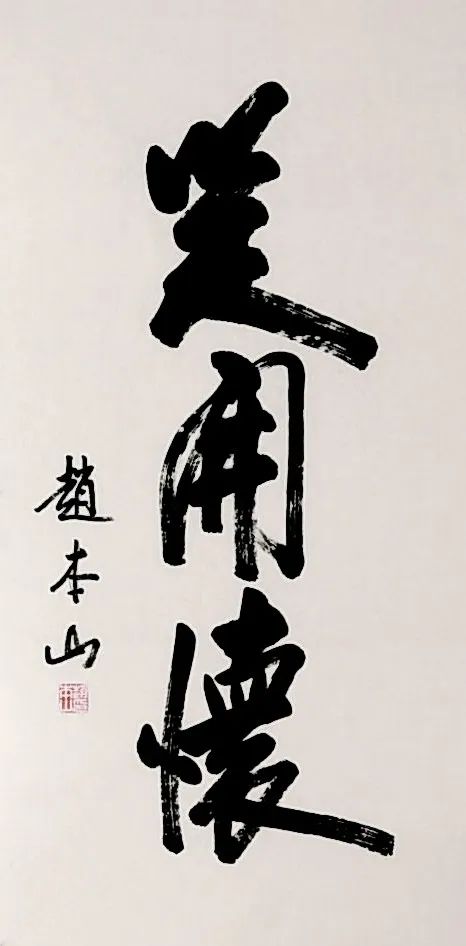 笑開懷
趙本山